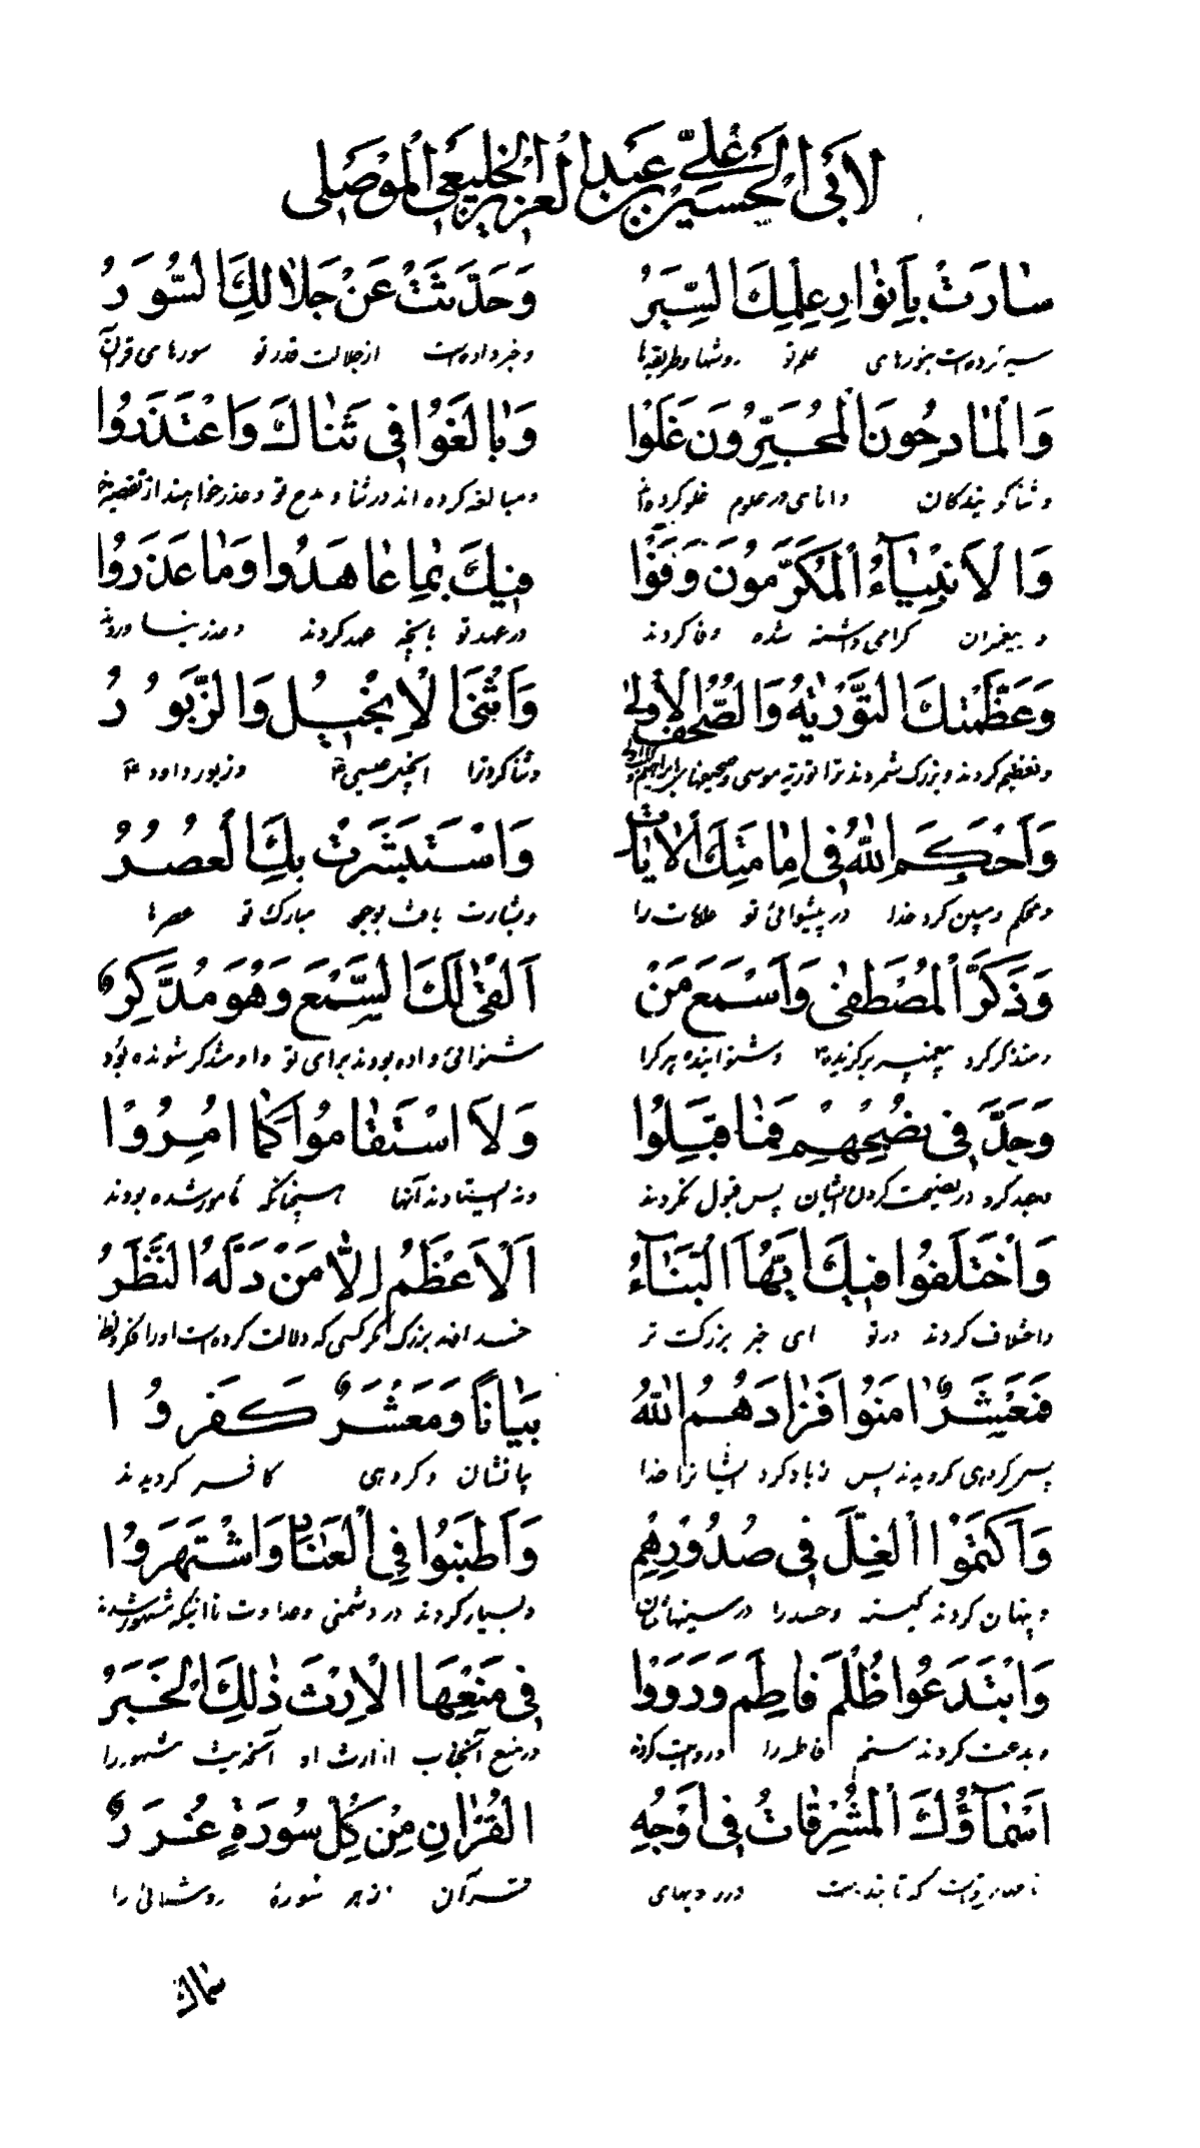 لأبی الحسین علی بن عبد العزیز الخلیعی الموصلی
سٰارَتْ بِاَنْوٰارِ عِلْمِكَ السِّيَرُ وَحَدَّثَتْ عَنْ جَلاٰلِكَ السُّوَرُ
سیر کرده‌است بنورهای علم تو روشها وطریقه‌ها وخبر داده‌است از جلالت قدر تو سورهای قرآن
وَالْمٰادِحُونَ الْمُخْبِرُونَ غَلَوْا وَبٰالَغَوُا فِی ثَنٰاكَ وَاعْتَذَرُوا
وثنا گویندکان دانای در علوم غلو کرده‌اند ومبالغه کرده‌اند در ثنا ومدح تو وعذر خواهند از تقصیر
وَالْاَنْبِيٰآءُ الْمُكَرَّمُونَ وَفَوْا فِيكَ بِمٰا عٰاهَدُوا وَمٰا عَذَرُوا
وپیغمبران کرامی داشته شده وفا کردند در عهد تو بآنچه عهد کردند وعذر نیاوردند
وَعَظَّمَتْكَ التَّوْرٰيةُ وَالصُّحُفُ الْاُولٰى وَاَثْنَى الْاِنْجِيلُ وَالزَّبُورُ
وتعظیم کردند وبزرک شمردند ترا توریة موسی وصحیفهای ابراهیم وثنا کرد ترا انجیل عیسی ع وزبور داود ع
وَاَحْكَمَ اللّٰهُ فِی اِمٰامَتِكَ الْاٰيٰاتِ وَاسْتَبْشَرَتْ بِكَ الْعُصُرُ
ومحکم ومبین کرد خدا در پیشوائی تو علامات را وبشارت یافت بوجود مبارک تو عصرها
وَذَكَّرَ الْمُصْطَفٰى وَاَسْمَعَ مَنْ اَلْقٰى لَكَ السَّمْعَ وَهُوَ مُدَّكِرٌ
ومتذکر کرد پیغمبر برکزیده وشنوانید هر کرا شنوائی داده بودند برای تو واو متذکر شونده بود
وَجَدَّ فِی نُصْحِهِمْ فَمٰا قَبِلُوا وَلاَ اسْتَقٰامُوا كَمٰا اُمِرُوا
وجد کرد در نصیحت کردن ایشان پس قبول نکردند ونه ایستادند آنها همچنانکه مامور شده بودند
وَاخْتَلَفُوا فِيكَ اَيُّهَا النَّبَآءُ اَلْاَعْظَمُ اِلاّٰ مَنْ دَلَّهُ النَّظَرُ
واختلاف کردند در تو ای خبر بزرکتر خداوند بزرک مکر کسی که دلالت کرده‌است اورا فکر ونظر
فَمَعْشَرٌ اٰمَنُوا فَزٰادَهُمُ اللّٰهُ بَيٰاناً وَمَعْشَرٌ كَفَرُوا
پس کروهی کرویدند پس زیاد کرد ایشانرا خدا وکروهی کافر کردیدند
وَاَكْتَمَوُا الْغِلَّ فِی صُدُورِهِمِ وَاَطْنَبُوا فِی الْعَنٰا وَاشْتَهَرُوا
وپنهان کردند کینه وحسدرا در سینهاشان وبسیار کردند در دشمنی وعداوت تا اینکه مشهور شدند
وَابْتَدَعُوا ظُلْمَ فٰاطِمَ وَرَوَوْا فِی مَنْعِهَا الْاِرْثَ ذٰلِكَ الْخَبَرُ
وبدعت کردند ستم فاطمه را وروایت کردند در منع آنجناب از ارث او آنحدیث مشهور را
اَسْمٰآؤُكَ الْمُشْرِقٰاتُ فِی اَوْجُهِ الْقُرْاٰنِ مِنْ كُلِّ سُورَةٍ غُرَرٌ
که تابنده‌است در رویهای قرآن از هر سوره روشنائی را
سماك